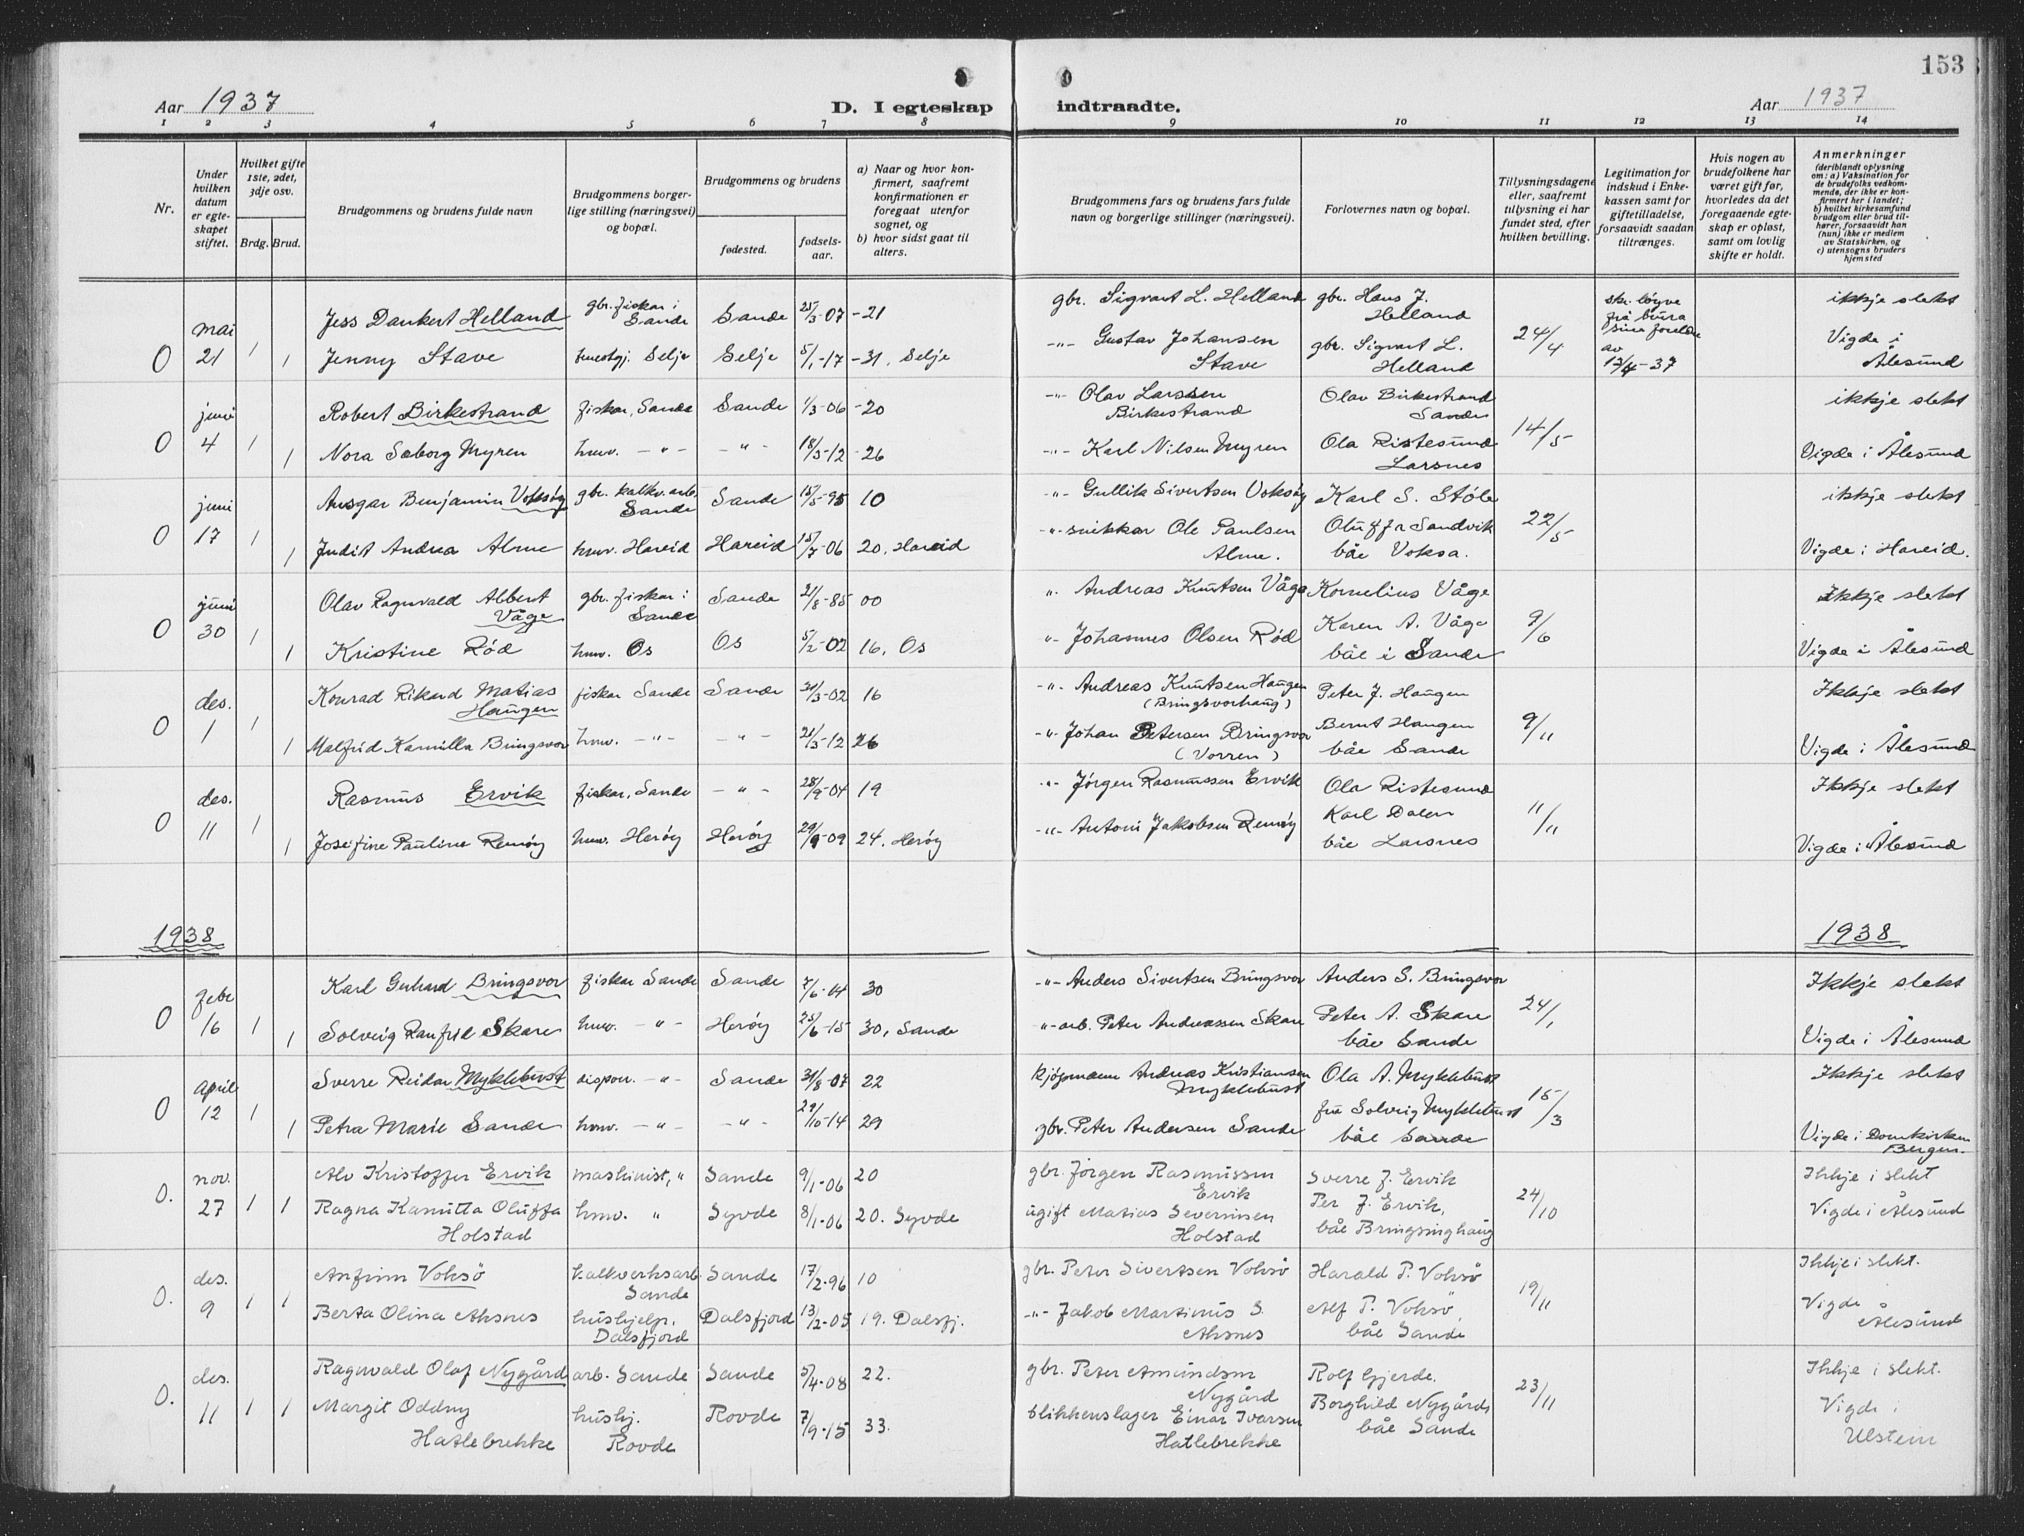 153
Aar 1937
D. I egteskap
indtraadte.
Aar 1937
1 2 3 4 5 6 7 8 9 10 11 12 13 14
Nr.
Under hvilken datum er egteskapet stiftet.
Hvilket gifte 1ste, 2det, 3dje osv.
Brdg. Brud.
Brudgommens og brudens fulde navn
Brudgommens borgerlige stilling (næringsvei) og bopæl.
Brudgommens og brudens
fødested.
fødselsaar.
a) Naar og hvor konfirmert, saafremt konfirmationen er foregaat utenfor sognet, og
b) hvor sidst gaat til alters.
Brudgommens fars og brudens fars fulde navn og borgerlige stillinger (næringsvei).
Forlovernes navn og bopæl.
Tillysningsdagene eller, saafremt tillysning ei har fundet sted, efter hvilken bevilling.
Legitimation for indskud i Enkekassen samt for giftetilladelse, forsaavidt saadan tiltrænges.
Hvis nogen av brudefolkene har været gift før, hvorledes da det foregaaende egteskap er opløst, samt om lovlig skifte er holdt.
Anmerkninger
(deriblandt oplysning om: a) Vaksination for de brudefolks vedkommende, der ikke er konfirmert her i landet; b) hvilket kirkesamfund brudgom eller brud tilhører, forsaavidt han (hun) ikke er medlem av Statskirken, og c) utensogns bruders hjemsted
mai Jess Dankert Helland gbr. fiskar i Sande Sande 25/3-07 -21 gbr. Sigvart L. Helland gbr. Hans J. Helland skr. løyve frå bura sine foreldre av 17/4-37 ikkje slekt
0 21 1 1 Jenny Stave Selje Selje 5/1-17 -31, Selje -"- Gustav Johansen Stave gbr. Sigvart L. Helland 24/4 Vigde i Ålesund
juni Robert Birkestrand fiskar, Sande Sande 1/3-06 -20 -"- Olav Larssen Birkestrand Olav Birkestrand Sande ikkje slekt
0 4 1 1 Nora Sæborg Myren husv. -"- -"- 18/5-12 -26 -"- Karl Nilsen Myren Ola Ristesund Larsnes 14/5 Vigde i Ålesund
juni Ansgar Benjamin Voksøy gbr. kalkv.arb. Sande Sande 15/5-95 10 -"- Gullik Sivertsen Voksøy Karl S. Støle ikkje slekt
0 17 1 1 Judit Andrea Alme husv. Hareid Hareid 15/7-06 20, Hareid -"- snikkar Ole Paulsen Alme. Oluf Sandvik båe Voksa. 22/5 Vigde i Hareid.
juni Olav Ragnvald Albert Våge gbr. fiskar i Sande Sande 21/8-85 00 " Andreas Knutsen Våge Kornelius Våge Ikkje slekt
0 30 1 1 Kristine Rød husv. Os Os 5/2-02 16, Os " Johannes Olsen Rød Karen A. Våge båe i Sande 9/6 Vigde i Ålesund
des. Konrad Rikard Matias Haugen fiskar Sande Sande 20/3-02 16 -"- Andreas Knutsen Haugen (Bringsvorhaug) Peter J. Haugen Ikkje slekt
0 1 1 1 Malfrid Kamilla Bringsvor husv. -"- -"- 21/3-12 26 -"- Johan Petersen Bringsvor (Vorren) Bernt Haugen båe Sande 9/11 Vigde i Ålesund
des. Rasmus Ervik fiskar, Sande -"- 28/9-04 19 -"- Jørgen Rasmussen Ervik Ola Ristesund Ikkje slekt
0 11 1 1 Josefine Pauline Remøy husv. Herøy Herøy 29/9-09 24, Herøy -"- Antoni Jakobsen Remøy Karl Dalen båe Larsnes 11/11 Vigde i Ålesund
1938 1938
febr Karl Gerhard Bringsvor fiskar Sande Sande 7/6-04 30 -"- Anders Sivertsen Bringsvor Anders S. Bringsvor Ikkje slekt
0 16 1 1 Solveig Ranfrid Skare husv. -"- Herøy 25/6-15 30, Sande -"- arb. Peter Andreassen Skare Peter A. Skare båe Sande 24/1 Vigde i Ålesund
April Sverre Reidar Myklebust dispon. -"- Sande 31/8-07 22 kjøpmann Andreas Kristiansen Myklebust Ola A. Myklebust Ikkje slekt
0 12 1 1 Petra Marie Sande husv. -"- -"- 29/10-14 29 gbr. Peter Andersen Sande fru Solveig Myklebust båe Sande 15/3 Vigde i Domkirken Bergen.
nov. Alv Kristoffer Ervik maskinist, " Sande 9/1-06 20 gbr. Jørgen Rasmussen Ervik Sverre J. Ervik Ikkje i slekt
0. 27 1 1 Ragna Kamitta Oluffa Holstad husv. " Syvde 8/1-06 20. Syvde ugift Matias Severinsen Holstad Per J. Ervik, båe Bringsinghaug 24/10 Vigde i Ålesund
des. Anfinn Voksö kalkverksarb Sande Sande 17/2-96 10 gbr. Peter Sivertsen Voksö Harald P. Voksö Ikkje i slekt.
0. 9 1 1 Berta Olina Aksnes hushjelp. Dalsfjord Dalsfjord 13/2-05 19. Dalsfj. -"- Jakob Martinus S. Aksnes Alf P. Voksö, båe Sande 19/11 Vigde Ålesund
des. Ragnvald Olaf Nygård arb. Sande Sande 5/4-08 22. gbr. Peter Amundsen Nygård Rolf Gjerde. Ikkje i slekt.
0. 11 1 1 Margit Oddny Hatlebrekke hushj. Rovde Rovde 7/9-15 33. blikkenslager Einar Ivarsen Hatlebrekke Borghild Nygård båe Sande 23/11 Vigde i Ulstein